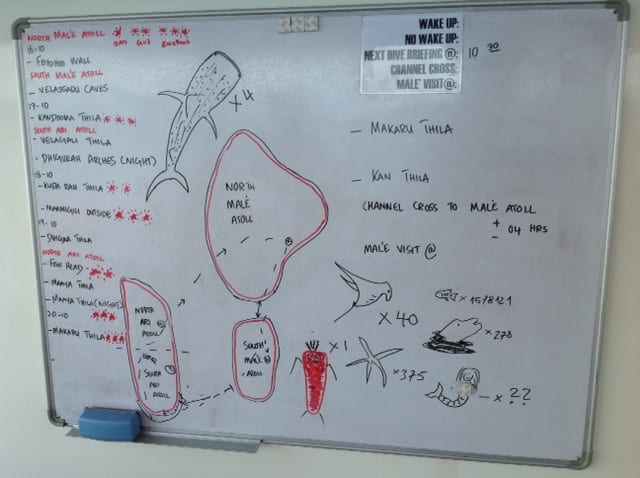 NORTH MALÉ ATOLL
GOOD EXCELLENT
16-10
- FETDHOO WALL
SOUTH MALÉ ATOLL
- VELASSARU CAVES
17-10
- KANDOOMA THILA
SOUTH ARI ATOLL
- VELAGALI THILA
- DHIGURAH ARCHES (NIGHT)
18-10
- KUDA RAH THILA
- MAAMIGILI OUTSIDE
19-10
- DHIGGA THILA
NORTH ARI ATOLL
- FISH HEAD
- MAAYA THILA
- MAAYA THILA (NIGHT)
20-10
- MAKARU THILA
-
X4
NORTH
MALÉ
ATOLL
NORTH
ARI
ATOLL
SOUTH
ARI
ATOLL
SOUTH
MALÉ
ATOLL
WAKE UP:
NO WAKE UP:
NEXT DIVE BRIEFING @: 10 30
CHANNEL CROSS:
MALE' VISIT @:
- MAKARU THILA
- KAN THILA
CHANNEL CROSS TO MALÉ ATOLL
+
- 04 HRS
MALÉ VISIT @
X 40
x 1578121
x 278
X 1
x 375
x ??